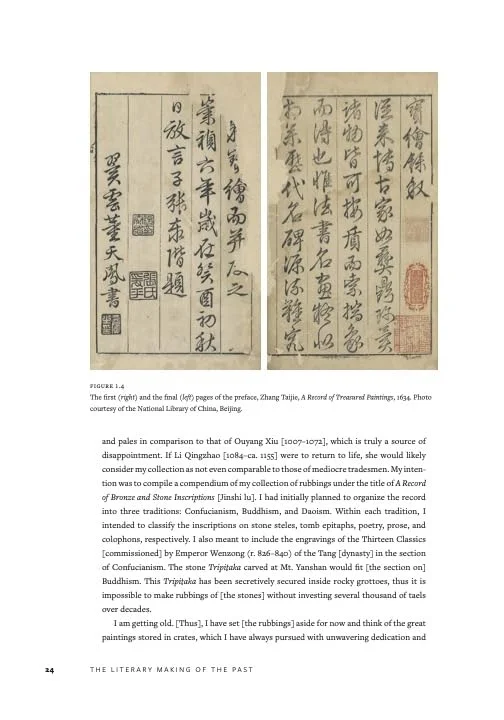 寶繪錄敘
從来博古家如彝鼎
諸物皆可按質而索
而得也惟法書名畫
代名碑源流雜
繪而并及之
崇禎六年歲在癸酉初秋
日放言子張泰階題
翼雲董天胤書
FIGURE 1.4
The first (right) and the final (left) pages of the preface, Zhang Taijie, A Record of Treasured Paintings, 1634. Photo
courtesy of the National Library of China, Beijing.
and pales in comparison to that of Ouyang Xiu [1007–1072], which is truly a source of
disappointment. If Li Qingzhao [1084–ca. 1155] were to return to life, she would likely
consider my collection as not even comparable to those of mediocre tradesmen. My inten-
tion was to compile a compendium of my collection of rubbings under the title of A Record
of Bronze and Stone Inscriptions [Jinshi lu]. I had initially planned to organize the record
into three traditions: Confucianism, Buddhism, and Daoism. Within each tradition, I
intended to classify the inscriptions on stone steles, tomb epitaphs, poetry, prose, and
colophons, respectively. I also meant to include the engravings of the Thirteen Classics
[commissioned] by Emperor Wenzong (r. 826–840) of the Tang [dynasty] in the section
of Confucianism. The stone Tripiṭaka carved at Mt. Yanshan would fit [the section on]
Buddhism. This Tripiṭaka has been secretively secured inside rocky grottoes, thus it is
impossible to make rubbings of [the stones] without investing several thousand of taels
over decades.
I am getting old. [Thus], I have set [the rubbings] aside for now and think of the great
paintings stored in crates, which I have always pursued with unwavering dedication and
24 THE LITERARY MAKING OF THE PAST